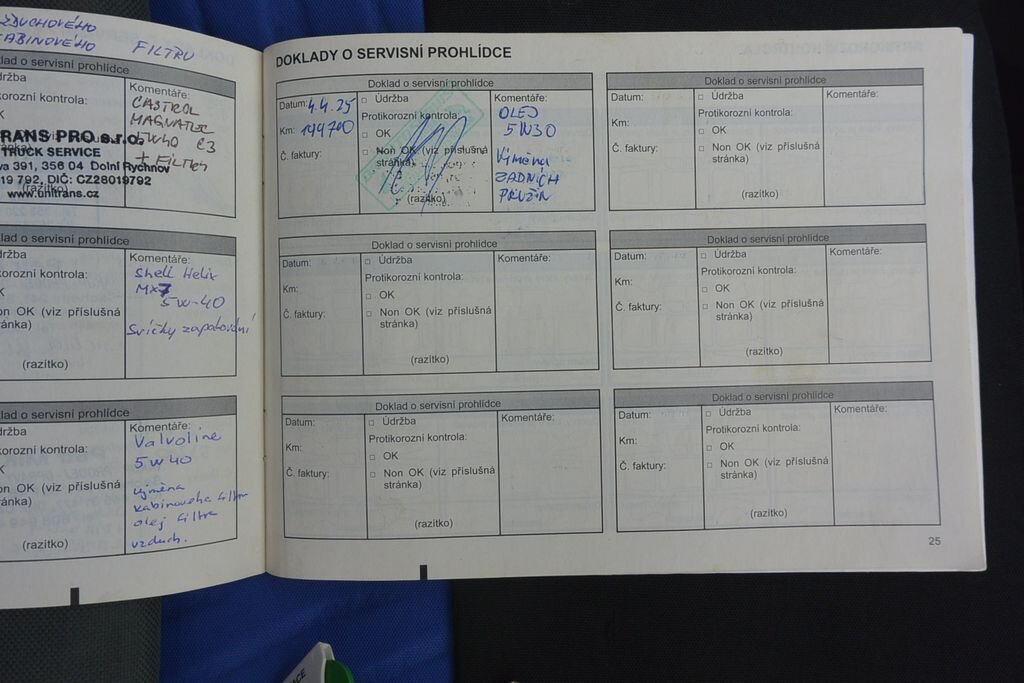 ZDUCHOVÉHO
KABINOVÉHO FILTRU
lad o servisní prohlídce
držba
korozní kontrola:
K
Komentáře:
CASTROL
MAGNATEC
5W40 C3
+ FILTRY
TRANS PRO s.r.o.
TRUCK SERVICE
va 391, 356 04 Dolní Rychnov
19 792, DIČ: CZ28019792
www.unitrans.cz
(razítko)
lad o servisní prohlídce
držba
korozní kontrola:
K
on OK (viz příslušná
ránka)
(razítko)
Komentáře:
Shell Helix
MX7
5W-40
Svíčky zapalování
lad o servisní prohlídce
držba
korozní kontrola:
K
on OK (viz příslušná
ránka)
(razítko)
Komentáře:
Valvoline
5W40
výměna
kabinového filtru
olej filtr
vzduch.
DOKLADY O SERVISNÍ PROHLÍDCE
Doklad o servisní prohlídce
Datum: 4.4.25
Km: 144700
Č. faktury:
□ Údržba
Protikorozní kontrola:
□ OK
□ Non OK (viz příslušná
stránka)
(razítko)
Komentáře:
OLEJ
5W30
Výměna
ZADNÍCH
PRUŽIN
Doklad o servisní prohlídce
Datum:
Km:
Č. faktury:
□ Údržba
Protikorozní kontrola:
□ OK
□ Non OK (viz příslušná
stránka)
(razítko)
Komentáře:
Doklad o servisní prohlídce
Datum:
Km:
Č. faktury:
□ Údržba
Protikorozní kontrola:
□ OK
□ Non OK (viz příslušná
stránka)
(razítko)
Komentáře:
Doklad o servisní prohlídce
Datum:
Km:
Č. faktury:
□ Údržba
Protikorozní kontrola:
□ OK
□ Non OK (viz příslušná
stránka)
(razítko)
Komentáře:
Doklad o servisní prohlídce
Datum:
Km:
Č. faktury:
□ Údržba
Protikorozní kontrola:
□ OK
□ Non OK (viz příslušná
stránka)
(razítko)
Komentáře:
Doklad o servisní prohlídce
Datum:
Km:
Č. faktury:
□ Údržba
Protikorozní kontrola:
□ OK
□ Non OK (viz příslušná
stránka)
(razítko)
Komentáře:
25